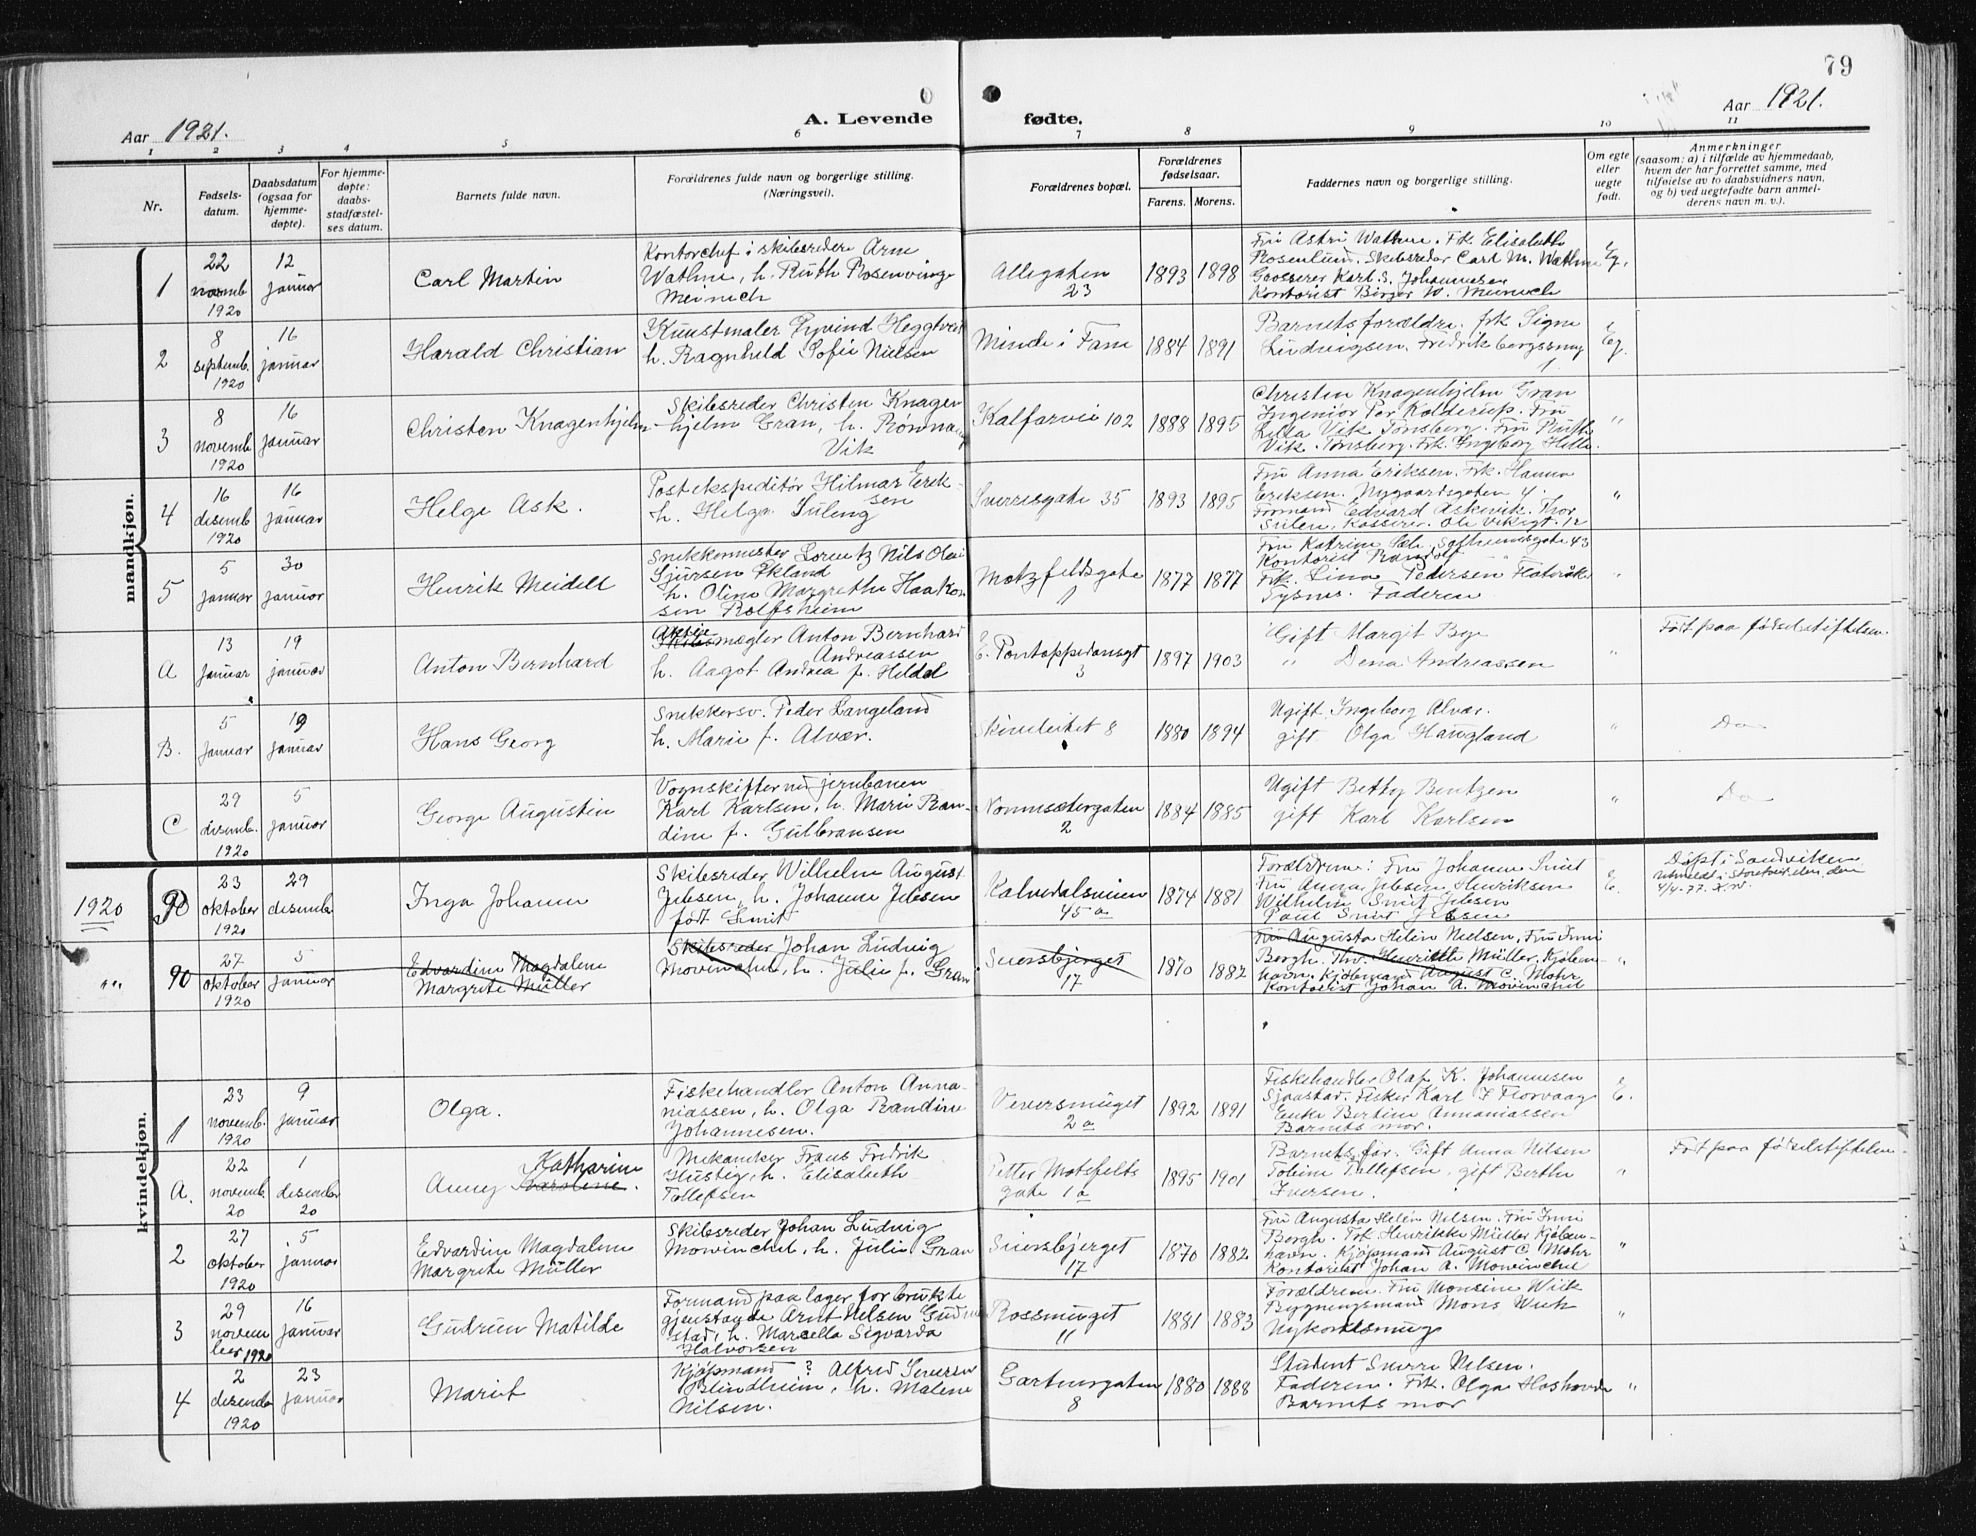 79
Aar 1921.
A. Levende
fødte.
Aar 1921.
1 2 3 4 5 6 7 8 9 10 11
Nr.
Fødsels-
datum.
Daabsdatum
(ogsaa for
hjemme-
døpte).
For hjemme-
døpte:
daabs-
stadfæstel-
ses datum.
Barnets fulde navn.
Forældrenes fulde navn og borgerlige stilling.
(Næringsvei).
Forældrenes bopæl.
Forældrenes
fødselsaar.
Farens. Morens.
Faddernes navn og borgerlige stilling.
Om egte
eller
uegte
født.
Anmerkninger
(saasom: a) i tilfælde av hjemmedaab,
hvem der har forrettet samme, med
tilføielse av to daabsvidners navn,
og b) ved uegtefødte barn anmel-
derens navn m. v.).
mandkjøn.
1
22
novemb
1920
12
januar
Carl Martin
Kontorchef i skibsrederi Arne
Wathne, h. Ruth Rosenvinge
Meinich
Allegaten
23
1893 1898
Fru Astri Wathne. Frk. Elisabeth
Rosenlund. Skibsreder Carl M. Wathne
Grosserer Karl S. Johannesen
Kontorist Birger W. Meinich
Eg.
2
8
septemb.
1920
16
januar
Harald Christian
Kunstmaler Eyvind Heggtveit
h. Ragnhild Sofie Nielsen
Minde i Fane
1884 1891
Barnets forældre. frk Signe
Ludvigsen. Fredriksbergssmug
1
Eg.
3
8
novemb
1920
16
januar
Christen Knagenhjelm
Skibsreder Christen Knagen-
hjelm Gran, h. Ronnaug
Vik
Kalfarvei 102
1888 1895
Christen Knagenhjelm Gran
Ingeniør Per Kolderup. Fru
Lilla Vik Tønsberg. Fru Ruth
Vik. Tønsberg. Frk. Ingeborg Helle.
"
4
16
desemb
1920
16
januar
Helge Ask.
Postekspeditør Hilmar Erik-
sen
h. Helga Suleng
Sverresgate 35
1893 1895
Fru Anna Eriksen. Frk. Hanna
Eriksen. Nygaardsgaten 4.
Formand Edvard Askevik. Thor
Sulen, Kasserer. Ole Viksgt. 12
"
5
5
januar
30
januar
Henrik Meidell
Snekkermester Lorentz Nils Olai
Gjersen Økland
h. Oline Margrethe Haakon-
sen Rolfsheim
Motzfeldsgate
1
1877 1877
Fru Katrine
Kontorist
Frk. Lina Pedersen Flatråker
Tysnes. Faderen
"
A
13
januar
19
januar
Anton Bernhard
Aktie
Skibsmægler Anton Bernhard
Andreassen
h. Aagot Andrea f. Heldal
E. Pontoppidansgt
3
1897 1903
Gift Margit Bye
" Dena Andreassen
"
Født paa fødselsstiftelsen.
B.
5
januar
19
januar
Hans Georg
Snekkersv. Peder Langeland
h. Marie f. Alvær.
Skivebakken 8
1880 1894
Ugift Ingeborg Alvær.
gift Olga Haugland
"
Do
C
29
desemb.
1920
5
januar
George Augustin
Vognskifter ved jernbanen
Karl Karlsen, h. Marie Ran-
dine f. Gulbransen
Nonnesætergaten
2
1884 1885
Ugift Betty Bentzen
gift Karl Karlsen
"
Do
kvindekjøn.
1920
90
23
oktober
1920
29
desemb.
Inga Johanne
Skibsreder Wilhelm August
Jebsen, h. Johanne Jebsen
født Smit
Kalvedalsveien
45 a
1874 1881
Forældrene: Fru Johanne Smit
Fru Anna Jebsen Henriksen
Wilhelm Smit Jebsen
Paul Smit Jebsen
E.
Døpt i Sandviken
4/4-77.
"
90
27
oktober
1920
5
januar
Edvardine Magdalene
Margrete Müller
Skibsreder Johan Ludvig
Mowinckel, h. Julie f. Gran
Seiersbjerget
17
1870 1882
Fru Augusta Helén Nielsen, Fru Inni
Borgh. Frk. Henrikke Müller, Kjøben-
havn. Kjøbmand August C. Mohr
Kontorist Johan A. Mowinckel
"
1
23
novemb.
1920
9
januar
Olga.
Fiskehandler Anton Anna-
niassen, h. Olga Randine
Johannesen.
Veversmuget
2 a
1892 1891
Fiskehandler Olaf K. Johannesen
Sjaastad. Fisker Karl J Florvaag
Enke Bertine Annaniassen
Barnets mor.
E.
A.
22
novemb.
20
1
desember
20
Katharine
Anny Karolene.
Mekaniker Frans Fredrik
Hustig, h. Elisabeth
Tollefsen
Petter Motzfelts
gate 1 a
1895 1901
Barnets far. Gift Anna Nilsen
Tobine Tollefsen, gift Berthe
Iversen.
"
Født paa fødselsstiftelsen.
2
27
oktober
1920
5
januar
Edvardine Magdalene
Margrete Müller
Skibsreder Johan Ludvig
Mowinckel, h. Julie Gran
Seiersbjerget
17
1870 1882
Fru Augusta Helén Nilsen. Fru Inni
Borgh. Frk Henrikke Müller Kjøben-
havn. Kjøpmand August C. Mohr
Kontorist Johan A. Mowinckel
"
3
29
novem
ber 1920
16
januar
Gudrun Matilde
Formand paa lager for brukte
gjenstande Arnt Nilsen Gudme-
stad, h. Marcella Sigvarda
Halvorsen
Rossmuget
11
1881 1883
Forældrene. Fru Monsine Wiik
Bygningsmand Mons Wiik
Nykorssmug
"
4
2
desemb
1920
23
januar
Marit
Kjøpmand ? Alfred Severin
Blindheim, h. Malene
Nilsen.
Gartnergaten
8
1880 1888
Student Sverre Nilsen.
Faderen. Frk. Olga Hoshovde
Barnets mor
"